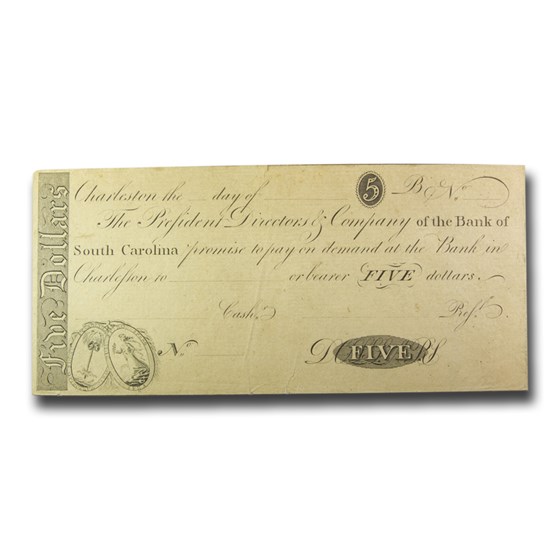 Five Dollars
Charleston the day of 5 B & No.
The President Directors & Company of the Bank of
South Carolina promise to pay on demand at the Bank in
Charleston to or bearer FIVE dollars.
Cash. Prest.
No. D FIVE RS